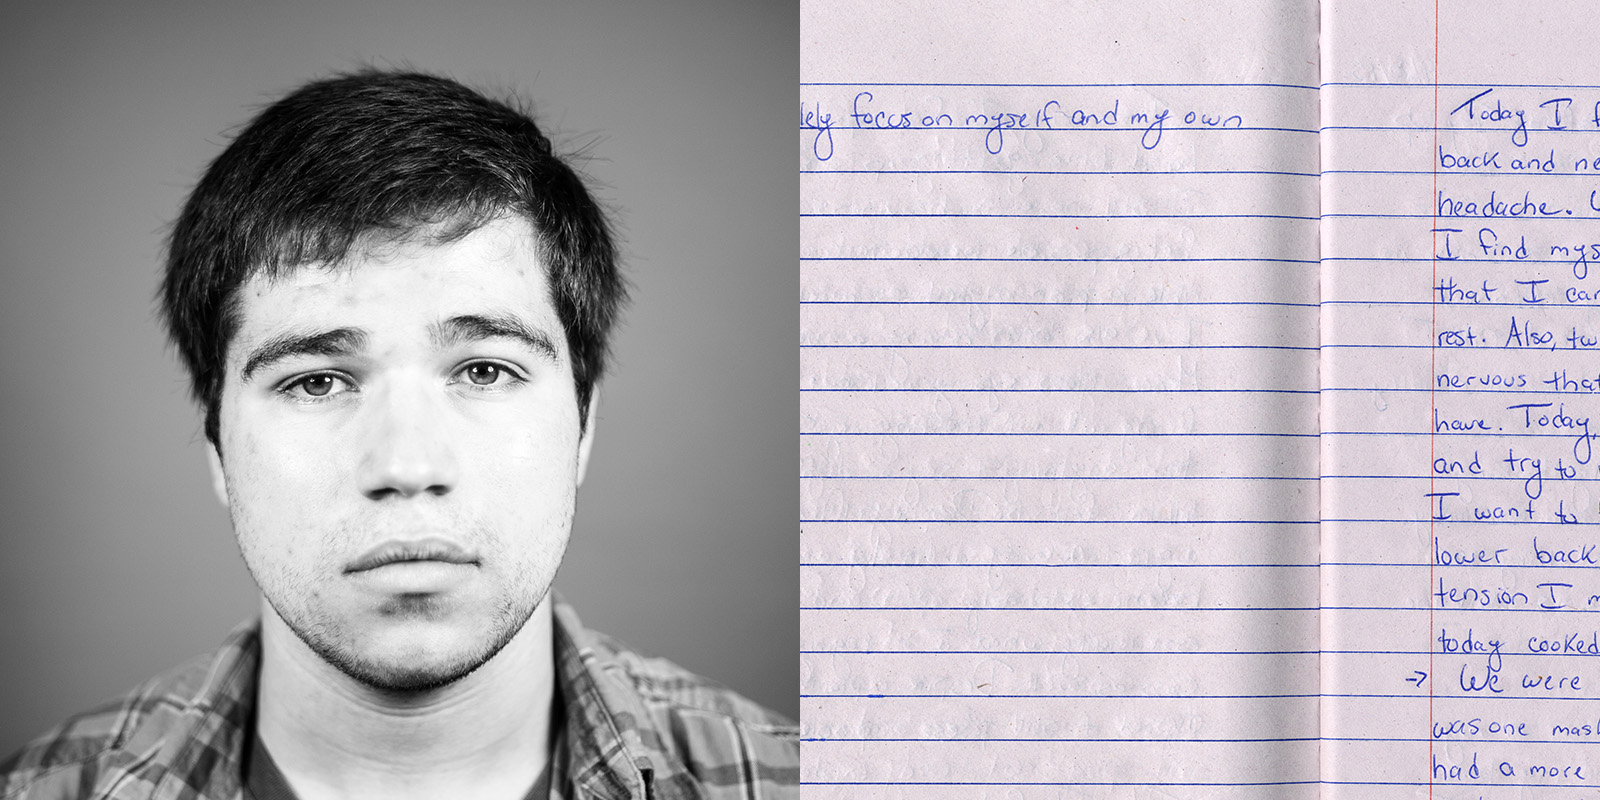 lely focus on myself and my own
Today I f
back and ne
headache.
I find mys
that I car
rest. Also, tw
nervous that
have. Today,
and try to
I want to
lower back
tension I m
today cooked
→ We were
was one mas
had a more